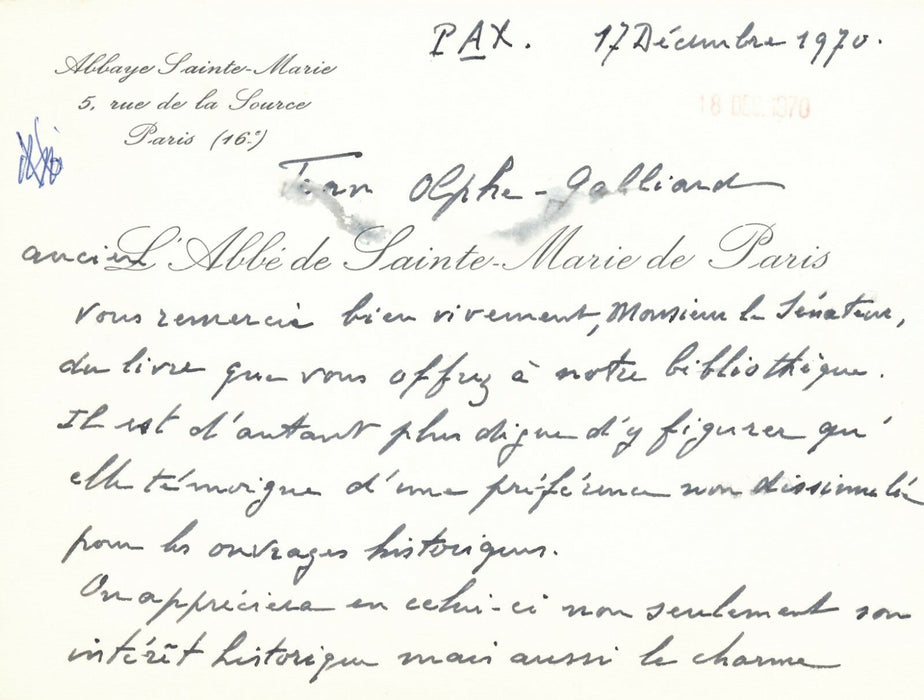 PAX. 17 Décembre 1970.
Abbaye Sainte-Marie
5, rue de la Source
Paris (16e)
18 DEC. 1970
Jean Olphe-Galliard
ancien L'Abbé de Sainte-Marie de Paris
vous remercie bien vivement, Monsieur le Sénateur,
du livre que vous offrez à notre bibliothèque.
Il est d'autant plus digne d'y figurer qu'
elle témoigne d'une préférence non dissimulée
pour les ouvrages historiques.
On appréciera en celui-ci non seulement son
intérêt historique mais aussi le charme